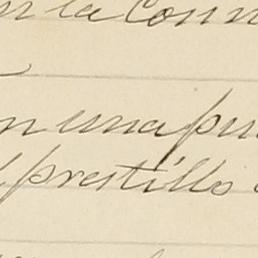 n la Conn
n una pu
prestillo